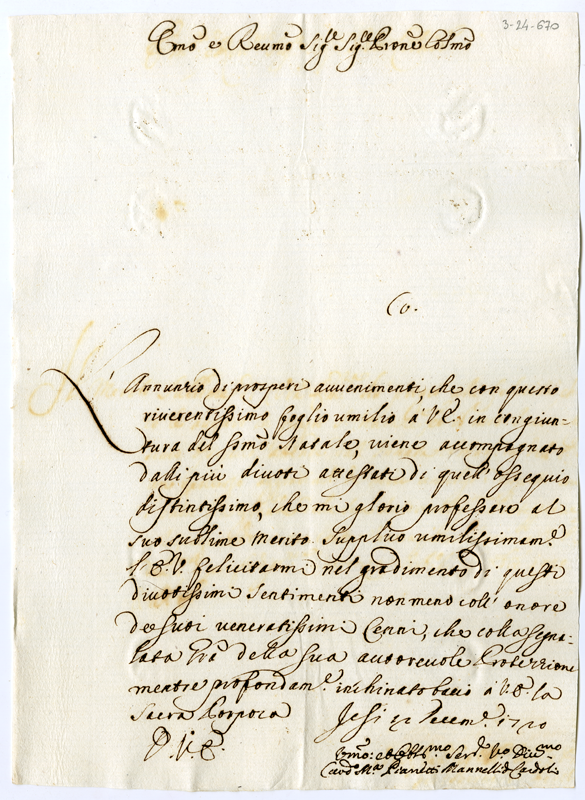 3-24-670
Emo e Reumo Sigre Sigre Prone Colmo
Co.
L'Annunzio di prosperi auuenimenti, che con questo
riuerentissimo foglio umilio à V.E. in congiun-
tura del Ssmo Natale, viene accompagnato
dalli più diuoti attestati di quell'ossequio
distintissimo, che mi glorio professare al
suo sublime merito. Supplico umilissimamte
l'E.V. felicitarmi nel gradimento di questi
diuotissimi sentimenti non meno coll'onore
de suoi veneratissimi Cenni, che colla segna-
lata gra della sua autoreuole Protezzione
mentre profondamte inchinato bacio à V.E. la
Sacra Porpora
Jesi Decemre 1720
D. V. E.